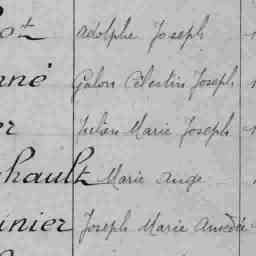 ot Adolphe Joseph
nné Galon Célestin Joseph
er Julien Marie Joseph
hault Marie Ange
inier Joseph Marie Amédée